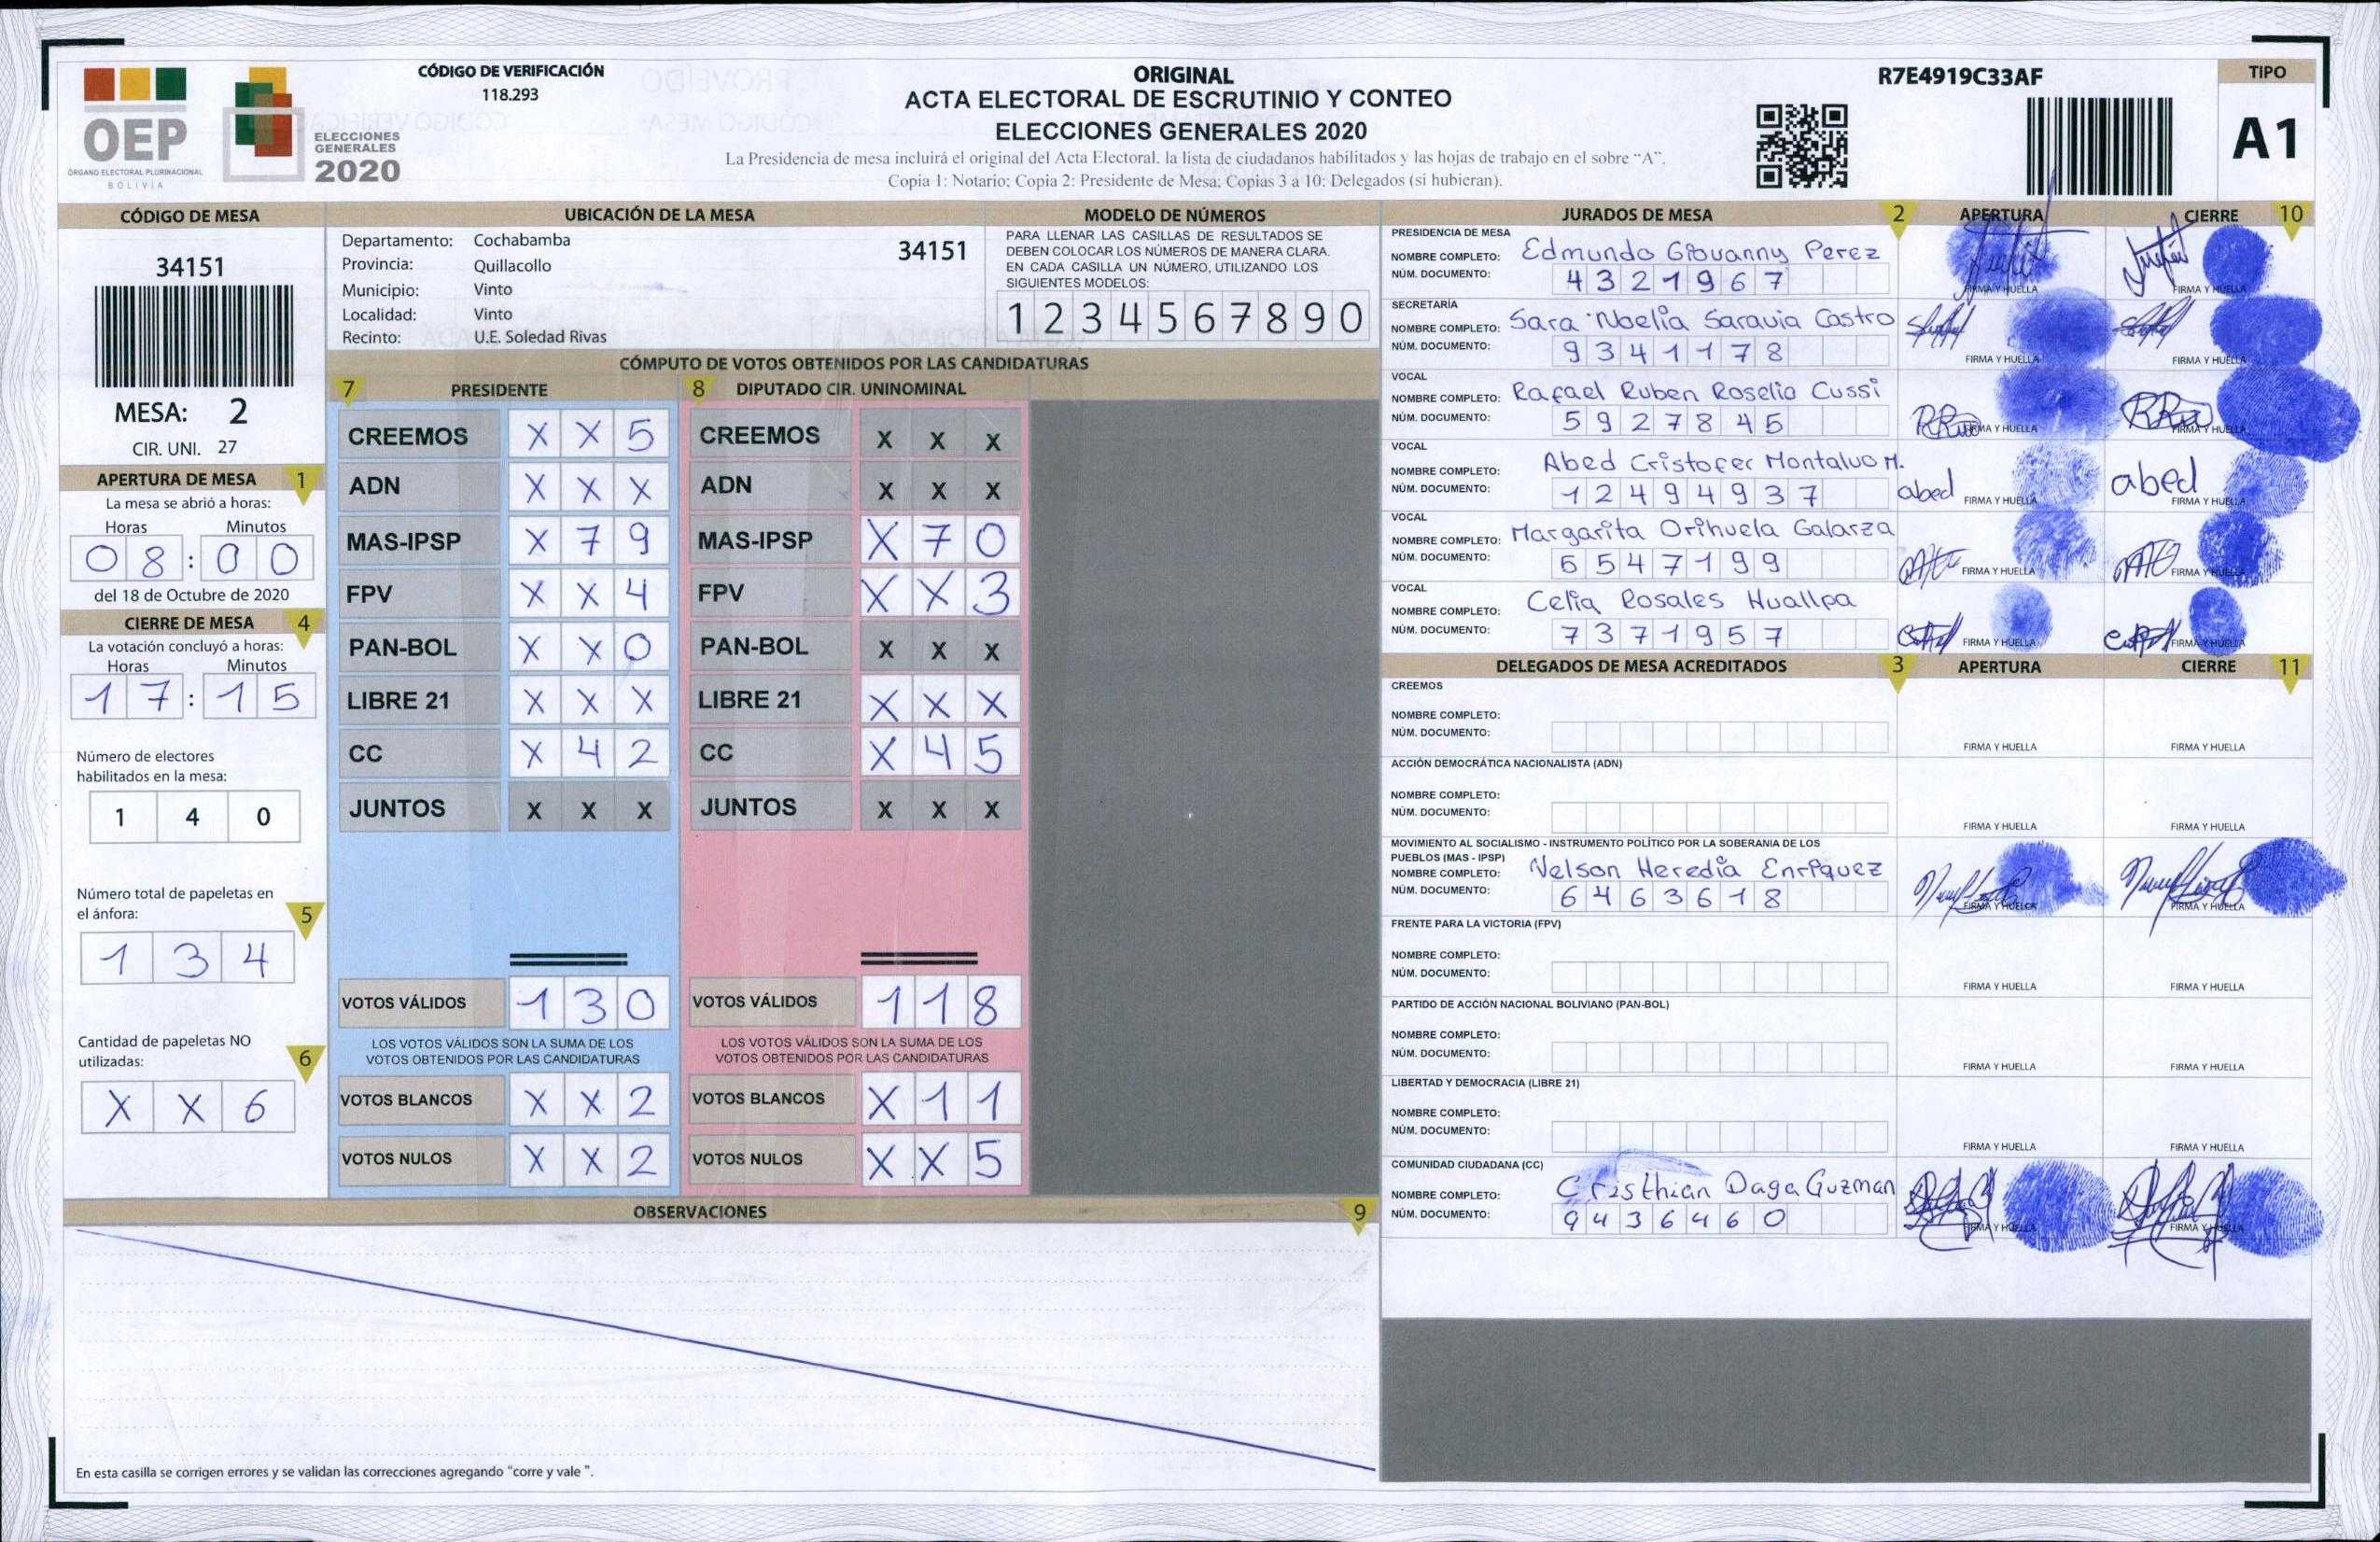 OEP
ÓRGANO ELECTORAL PLURINACIONAL
BOLIVIA
ELECCIONES
GENERALES
2020
CÓDIGO DE VERIFICACIÓN
118.293
ORIGINAL
ACTA ELECTORAL DE ESCRUTINIO Y CONTEO
ELECCIONES GENERALES 2020
La Presidencia de mesa incluirá el original del Acta Electoral. la lista de ciudadanos habilitados y las hojas de trabajo en el sobre "A".
Copia 1: Notario; Copia 2: Presidente de Mesa; Copias 3 a 10: Delegados (si hubieran).
R7E4919C33AF
TIPO
A1
CÓDIGO DE MESA
34151
MESA: 2
CIR. UNI. 27
APERTURA DE MESA 1
La mesa se abrió a horas:
Horas Minutos
08:00
del 18 de Octubre de 2020
CIERRE DE MESA 4
La votación concluyó a horas:
Horas Minutos
17:15
Número de electores
habilitados en la mesa:
1 4 0
Número total de papeletas en
el ánfora: 5
1 3 4
Cantidad de papeletas NO
utilizadas: 6
X X 6
UBICACIÓN DE LA MESA
Departamento: Cochabamba 34151
Provincia: Quillacollo
Municipio: Vinto
Localidad: Vinto
Recinto: U.E. Soledad Rivas
MODELO DE NÚMEROS
PARA LLENAR LAS CASILLAS DE RESULTADOS SE
DEBEN COLOCAR LOS NÚMEROS DE MANERA CLARA.
EN CADA CASILLA UN NÚMERO, UTILIZANDO LOS
SIGUIENTES MODELOS:
1 2 3 4 5 6 7 8 9 0
CÓMPUTO DE VOTOS OBTENIDOS POR LAS CANDIDATURAS
7 PRESIDENTE 8 DIPUTADO CIR. UNINOMINAL
CREEMOS X X 5 CREEMOS X X X
ADN X X X ADN X X X
MAS-IPSP X 7 9 MAS-IPSP X 7 0
FPV X X 4 FPV X X 3
PAN-BOL X X 0 PAN-BOL X X X
LIBRE 21 X X X LIBRE 21 X X X
CC X 4 2 CC X 4 5
JUNTOS X X X JUNTOS X X X
VOTOS VÁLIDOS 1 3 0 VOTOS VÁLIDOS 1 1 8
LOS VOTOS VÁLIDOS SON LA SUMA DE LOS LOS VOTOS VÁLIDOS SON LA SUMA DE LOS
VOTOS OBTENIDOS POR LAS CANDIDATURAS VOTOS OBTENIDOS POR LAS CANDIDATURAS
VOTOS BLANCOS X X 2 VOTOS BLANCOS X 1 1
VOTOS NULOS X X 2 VOTOS NULOS X X 5
OBSERVACIONES 9
En esta casilla se corrigen errores y se validan las correcciones agregando "corre y vale ".
JURADOS DE MESA 2 APERTURA CIERRE 10
PRESIDENCIA DE MESA
NOMBRE COMPLETO: Edmundo Giovanny Perez
NÚM. DOCUMENTO: 4321967
FIRMA Y HUELLA FIRMA Y HUELLA
SECRETARÍA
NOMBRE COMPLETO: Sara Noelia Saravia Castro
NÚM. DOCUMENTO: 9341178
FIRMA Y HUELLA FIRMA Y HUELLA
VOCAL
NOMBRE COMPLETO: Rafael Ruben Roselio Cussi
NÚM. DOCUMENTO: 5927845
FIRMA Y HUELLA FIRMA Y HUELLA
VOCAL
NOMBRE COMPLETO: Abed Cristofer Montalvo M.
NÚM. DOCUMENTO: 12494937
abed FIRMA Y HUELLA abed FIRMA Y HUELLA
VOCAL
NOMBRE COMPLETO: Margarita Orihuela Galarza
NÚM. DOCUMENTO: 6547199
FIRMA Y HUELLA FIRMA Y HUELLA
VOCAL
NOMBRE COMPLETO: Celia Rosales Huallpa
NÚM. DOCUMENTO: 7371957
FIRMA Y HUELLA FIRMA Y HUELLA
DELEGADOS DE MESA ACREDITADOS 3 APERTURA CIERRE 11
CREEMOS
NOMBRE COMPLETO:
NÚM. DOCUMENTO:
FIRMA Y HUELLA FIRMA Y HUELLA
ACCIÓN DEMOCRÁTICA NACIONALISTA (ADN)
NOMBRE COMPLETO:
NÚM. DOCUMENTO:
FIRMA Y HUELLA FIRMA Y HUELLA
MOVIMIENTO AL SOCIALISMO - INSTRUMENTO POLÍTICO POR LA SOBERANIA DE LOS
PUEBLOS (MAS - IPSP)
NOMBRE COMPLETO: Nelson Heredia Enriquez
NÚM. DOCUMENTO: 6463618
FIRMA Y HUELLA FIRMA Y HUELLA
FRENTE PARA LA VICTORIA (FPV)
NOMBRE COMPLETO:
NÚM. DOCUMENTO:
FIRMA Y HUELLA FIRMA Y HUELLA
PARTIDO DE ACCIÓN NACIONAL BOLIVIANO (PAN-BOL)
NOMBRE COMPLETO:
NÚM. DOCUMENTO:
FIRMA Y HUELLA FIRMA Y HUELLA
LIBERTAD Y DEMOCRACIA (LIBRE 21)
NOMBRE COMPLETO:
NÚM. DOCUMENTO:
FIRMA Y HUELLA FIRMA Y HUELLA
COMUNIDAD CIUDADANA (CC)
NOMBRE COMPLETO: Cristhian Daga Guzman
NÚM. DOCUMENTO: 9436460
FIRMA Y HUELLA FIRMA Y HUELLA